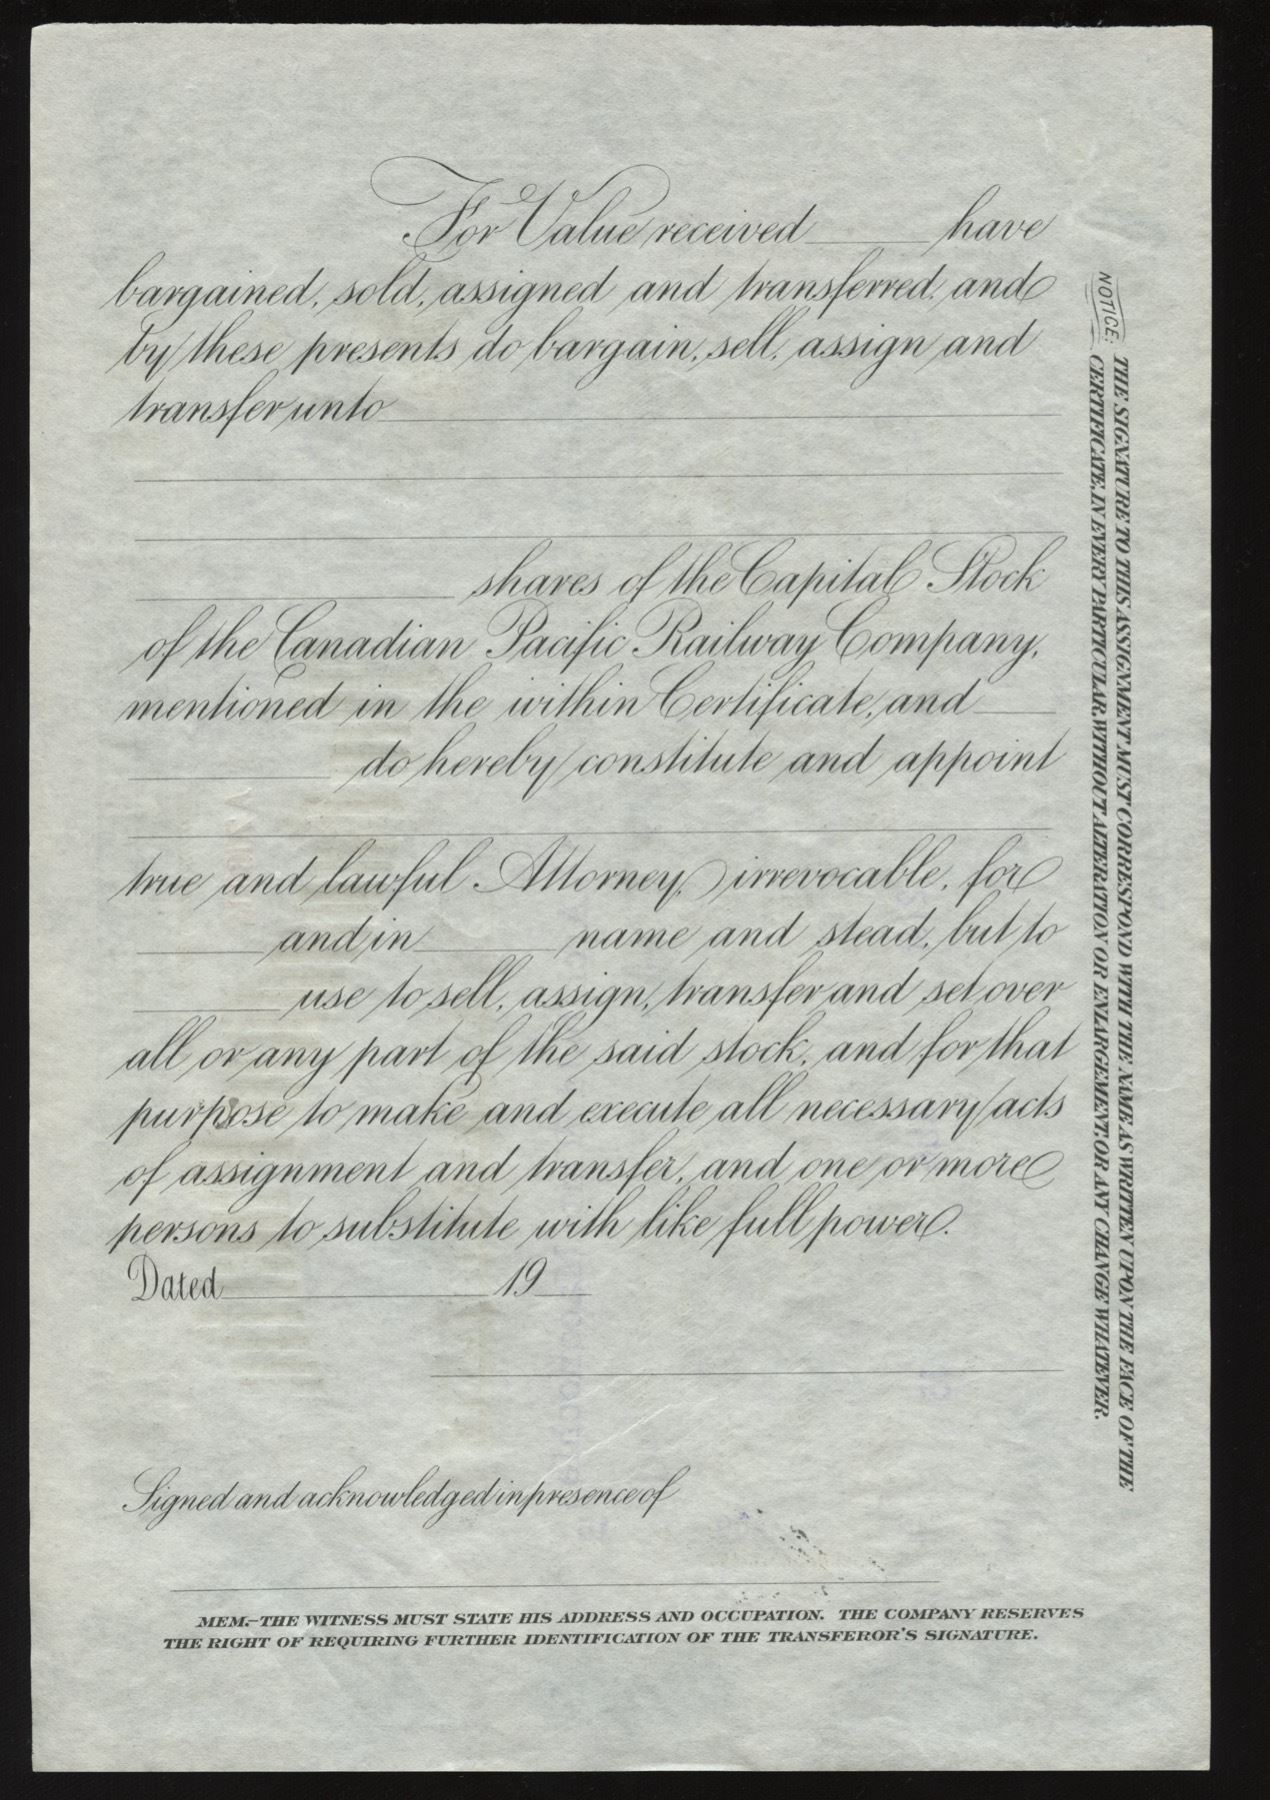 For Value received ______ have
bargained, sold, assigned and transferred, and
by these presents do bargain, sell, assign and
transfer unto
shares of the Capital Stock
of the Canadian Pacific Railway Company,
mentioned in the within Certificate, and
do hereby constitute and appoint
true and lawful Attorney, irrevocable, for
______ and in ______ name and stead, but to
______ use to sell, assign, transfer and set over
all or any part of the said stock, and for that
purpose to make and execute all necessary acts
of assignment and transfer, and one or more
persons to substitute with like full power.
Dated ______ 19
Signed and acknowledged in presence of
MEM.—THE WITNESS MUST STATE HIS ADDRESS AND OCCUPATION. THE COMPANY RESERVES
THE RIGHT OF REQUIRING FURTHER IDENTIFICATION OF THE TRANSFEROR'S SIGNATURE.
NOTICE: THE SIGNATURE TO THIS ASSIGNMENT MUST CORRESPOND WITH THE NAME AS WRITTEN UPON THE FACE OF THE
CERTIFICATE, IN EVERY PARTICULAR, WITHOUT ALTERATION OR ENLARGEMENT, OR ANY CHANGE WHATEVER.